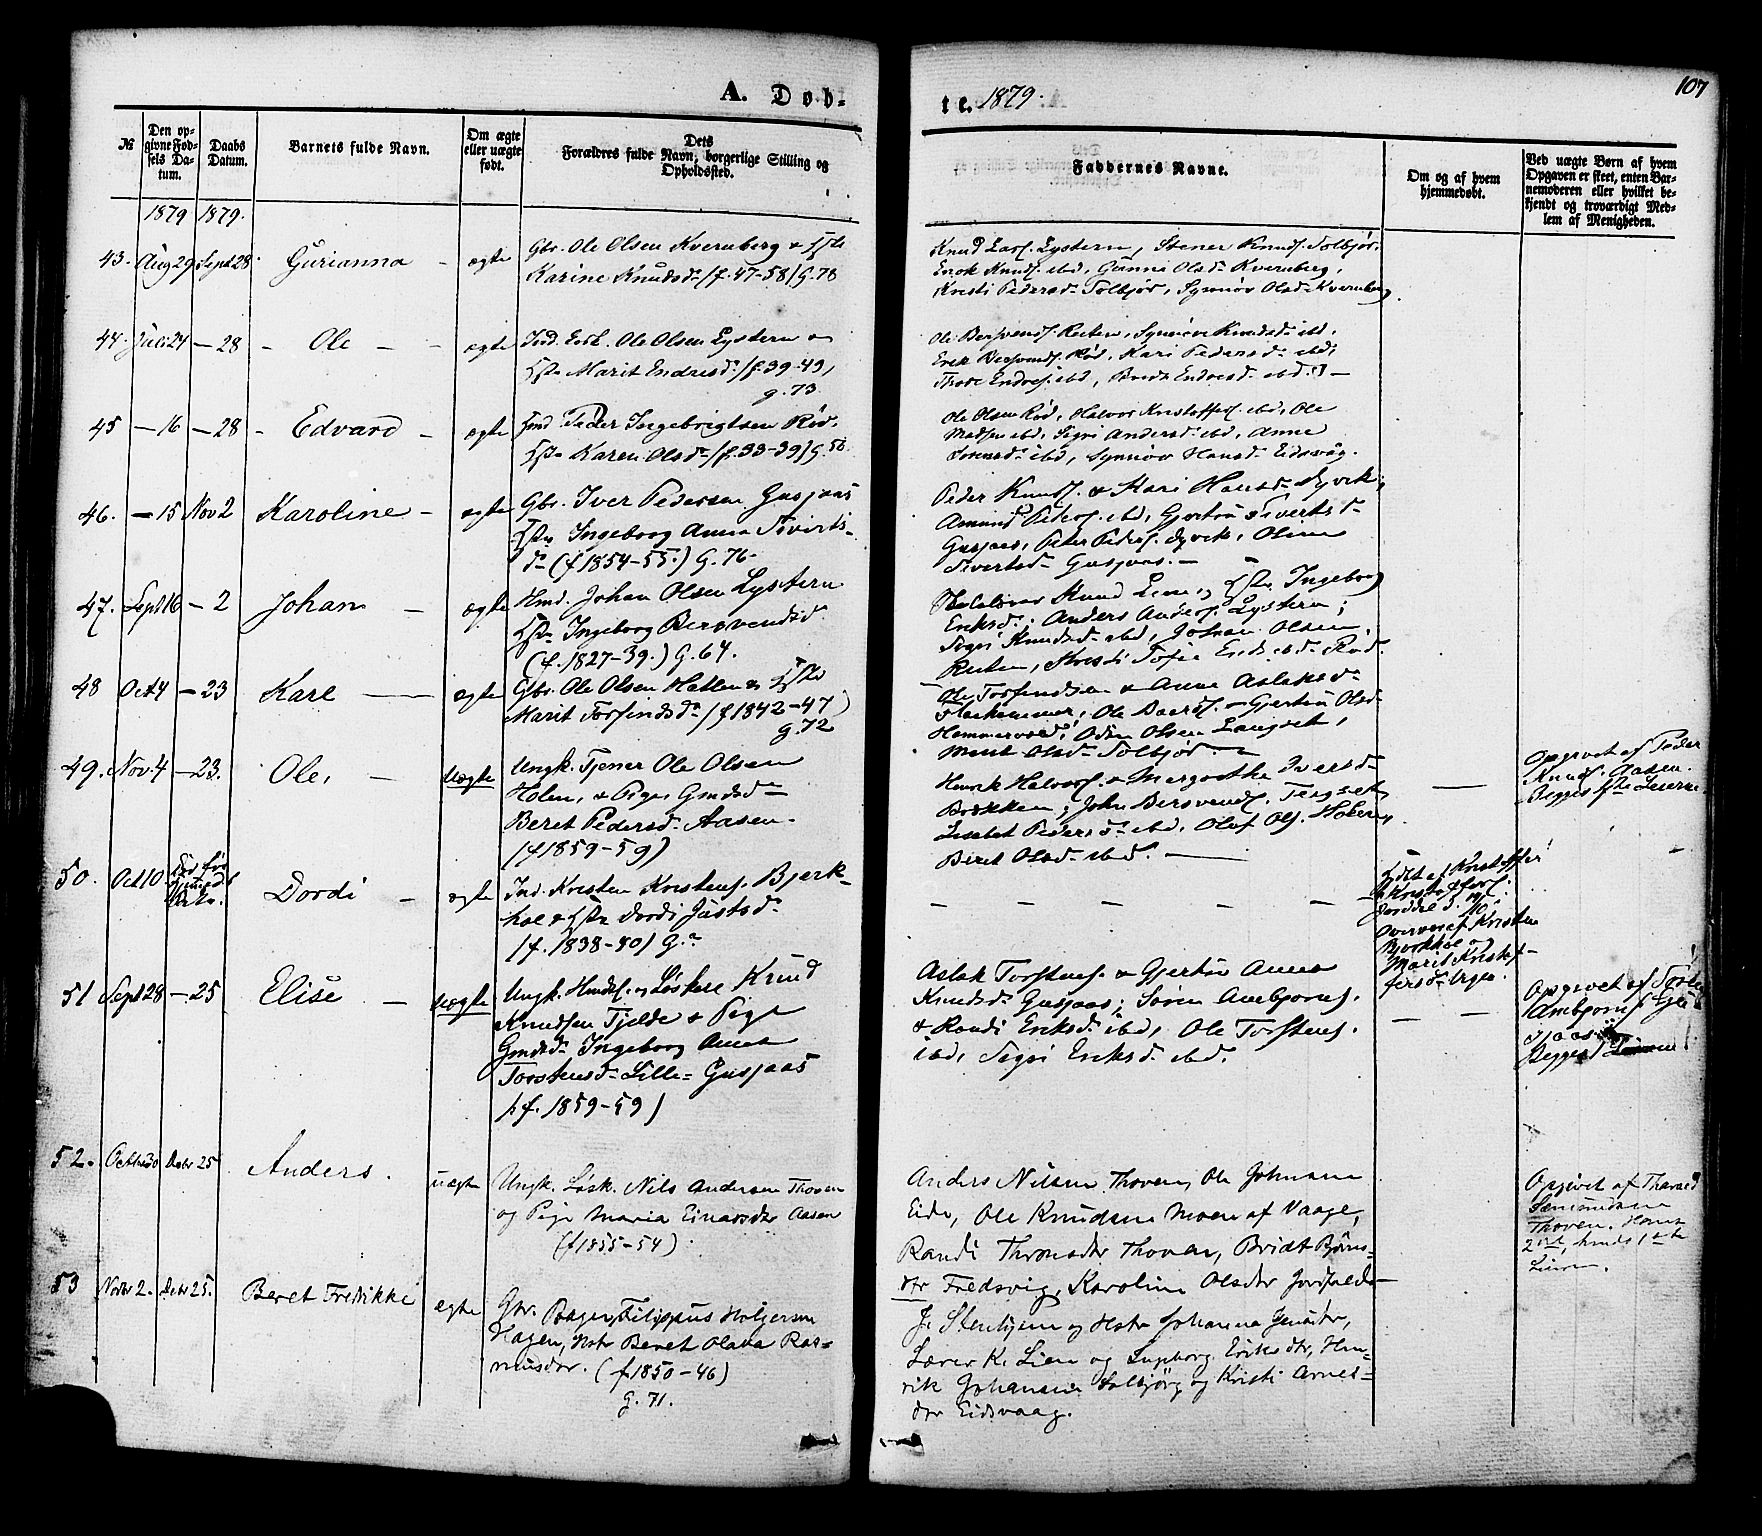 A. Døb-
te. 1879.
107
№
Den op-
givne Fød-
sels Da-
tum.
Daabs
Datum.
Barnets fulde Navn.
Om ægte
eller uægte
født.
Dets
Forældres fulde Navn, borgerlige Stilling og
Opholdssted.
Faddernes Navne.
Om og af hvem
hjemmedøbt.
Ved uægte Børn af hvem
Opgaven er skeet, enten Bar-
nemoderen eller hvilket be-
kjendt og troværdigt Med-
lem af Menigheden.
1879 1879.
43. Aug 29 Sept 28. Gurianna - ægte
Gbr. Ole Olsen Kvernberg &
Karine Knudsd. (f. 47-58) G. 78
Knud Lars. Lystern, Stener Knuds. Solbjør,
Erik Knuds. ibd, Gunni Olsd. Kvernberg,
Kristi Pedersd. Solbjør, Synnøv Olsd. Kvernberg
44. Juli 24 - 28 - Ole - ægte
Ind. Ole Olsen Lystern &
Marit Endresd. (f. 39-49,
g. 73
Ole Bersvends. Reiten, Synnøve Knudsd. ibd,
Erik Bersvends. Rød, Kari Pedersd. ibd,
Endres. ibd, Endresd. ibd. -
45 - 16 - 28 - Edvard - ægte
Ind. Peder Ingebrigtsen Rød,
Karen Olsd. (f. 33-39) G. 56
Ole Olsen Rød, Halvor Kristoffers. ibd, Ole
Madsen ibd, Segri Andersd. ibd, Anne
ibd, Synnøv Hansd. Eidsvåg.
46. - 15 Nov 2 Karoline - ægte
Gbr. Iver Pedersen Gusjaas
Ingeborg Anna Siverts-
d. (f. 1854-55.) G. 76.
Peder Knuds. & Kari Hansd. Dyvik,
Amund Peders. ibd, Gjertru Sivertsd.
Gusjaas, Peter Peders. Dyvik, Oline
Sivertsd. Gusjaas. -
47. Sept 16 - 2 Johan - ægte
Hmd. Johan Olsen Lystern
Ingeborg Bersvendsd.
(f. 1827-39.) G. 64.
Knud Lien, Ingeborg
Eriksd., Anders Anders. Lystern;
Segri Knudsd. ibd, Johan Olsen
Reiten, Kristi Sofie Eriksd. Rød.
48 Oct 4 - 23 Kare - ægte
Gbr. Ole Olsen Hatlen &
Marit Torfindsd. (f 1842-47)
g. 72
Ole Torfindsen & Anne Aslaksd.
Ole Baards. Gjertru Olsd.
Hammervold, Odin Olsen Langset,
Marit Olsd. Solbjør -
49. Nov. 4 - 23. Ole, - uægte
Ungk. Tjener Ole Olsen
Holen, & Pige Gmdsd.
Beret Pedersd. Aasen.
(f 1859-59)
Henrik Halvors. & Margrethe Iversd.
Brekken, John Bersvends. Tingset,
Lisabet Pedersd. ibd, Olof Ols. Holen,
Beret Olsd. ibd. -
Opgivet af Peder
Knuds. Aasen.
Begges 1ste Leierm
50. Oct 10 Dordi - ægte
Ind. Kristen Kristens. Bjerk-
hol & Dordi Justsd.
(f. 1838-40) G.
Hdbt af Kristoffer
Kristoffers.
overvær. af Kristen
Bjerkhol og
Marit Kristof-
fersd.
51 Sept 28 - 25 Elise - uægte
Ungk. Hmds. og Løskerl Knud
Knudsen Tjelde & Pige
Gmdsd. Ingeborg Anne
Torstensd. Lille-Gusjaas
(f. 1859-59)
Aslak Torstens. & Gjertru Anne
Knudsd. Gusjaas; Søren Ambjørns.
& Randi Eriksd. ibd, Ole Torstens.
ibd, Segri Eriksd. ibd.
Opgivet af
Ambjørns. Gu-
sjaas
Begges
52. Octbr 30 Debr 25 Anders. uægte
Ungk. Løsk. Nils Andersen Thoven
og Pige Maria Einarsdtr Aasen
(f 1855-54)
Anders Nilsen Thoven, Ole Johnsen
Eide, Ole Knudsen Moen af Vaage,
Randi Thronsdtr Thoven, Bridt Bjørns-
dtr Fredsvig, Karoline Olsdtr Jordfald-
Opgivet af
Thoven. Hans
2det, hendes 1ste
Leierm.
53 Novbr 2. Debr 25. Beret Fredrikke ægte
Gbr. Bager, Filippus Holgersen
Hagen, Hstr Beret Olava Ras-
musdtr. (f 1850-46)
G. 71.
J. Stenhjem og Hstr Johanna Jensdtr,
Lærer K. Lien og Ingeborg Eriksdtr, Hen-
rik Johansen Solbjørg og Kristi Arnes-
dtr Eidsvaag.